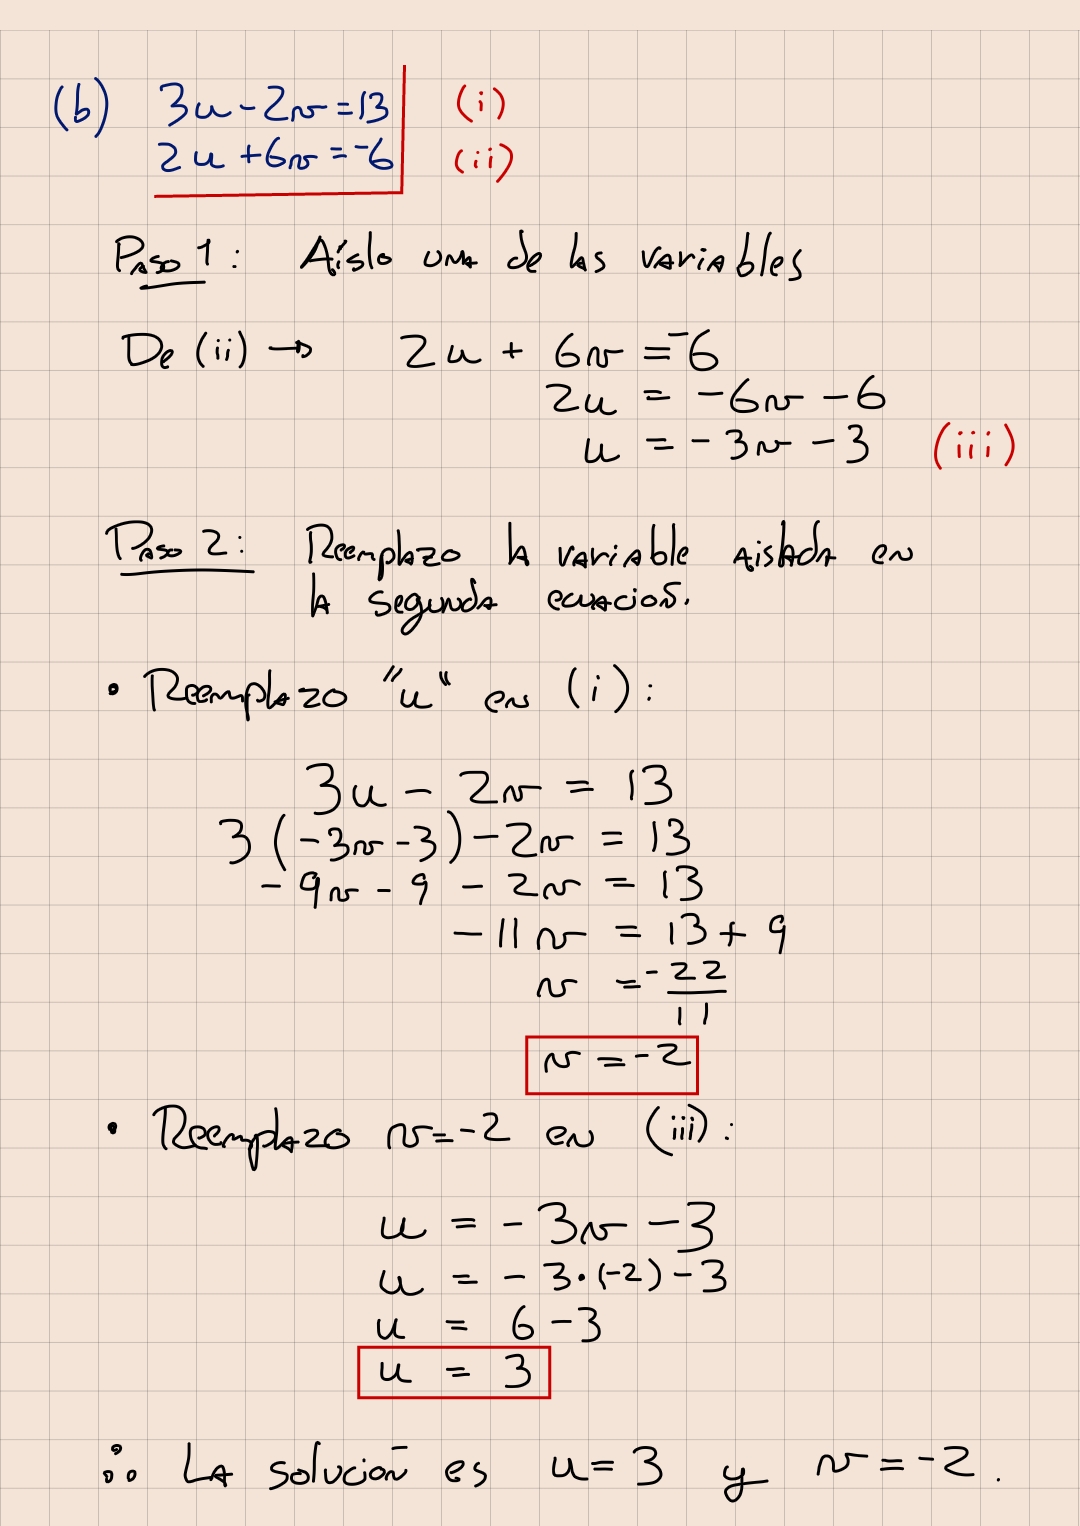 (b) 3u - 2v = 13 (i)
2u + 6v = -6 (ii)
Paso 1: Aíslo una de las variables
De (ii) → 2u + 6v = -6
2u = -6v - 6
u = -3v - 3 (iii)
Paso 2: Reemplazo la variable aislada en
la segunda ecuación.
• Reemplazo "u" en (i):
3u - 2v = 13
3(-3v - 3) - 2v = 13
-9v - 9 - 2v = 13
-11v = 13 + 9
v = -22/11
v = -2
• Reemplazo v = -2 en (iii):
u = -3v - 3
u = -3·(-2) - 3
u = 6 - 3
u = 3
∴ La solución es u = 3 y v = -2.